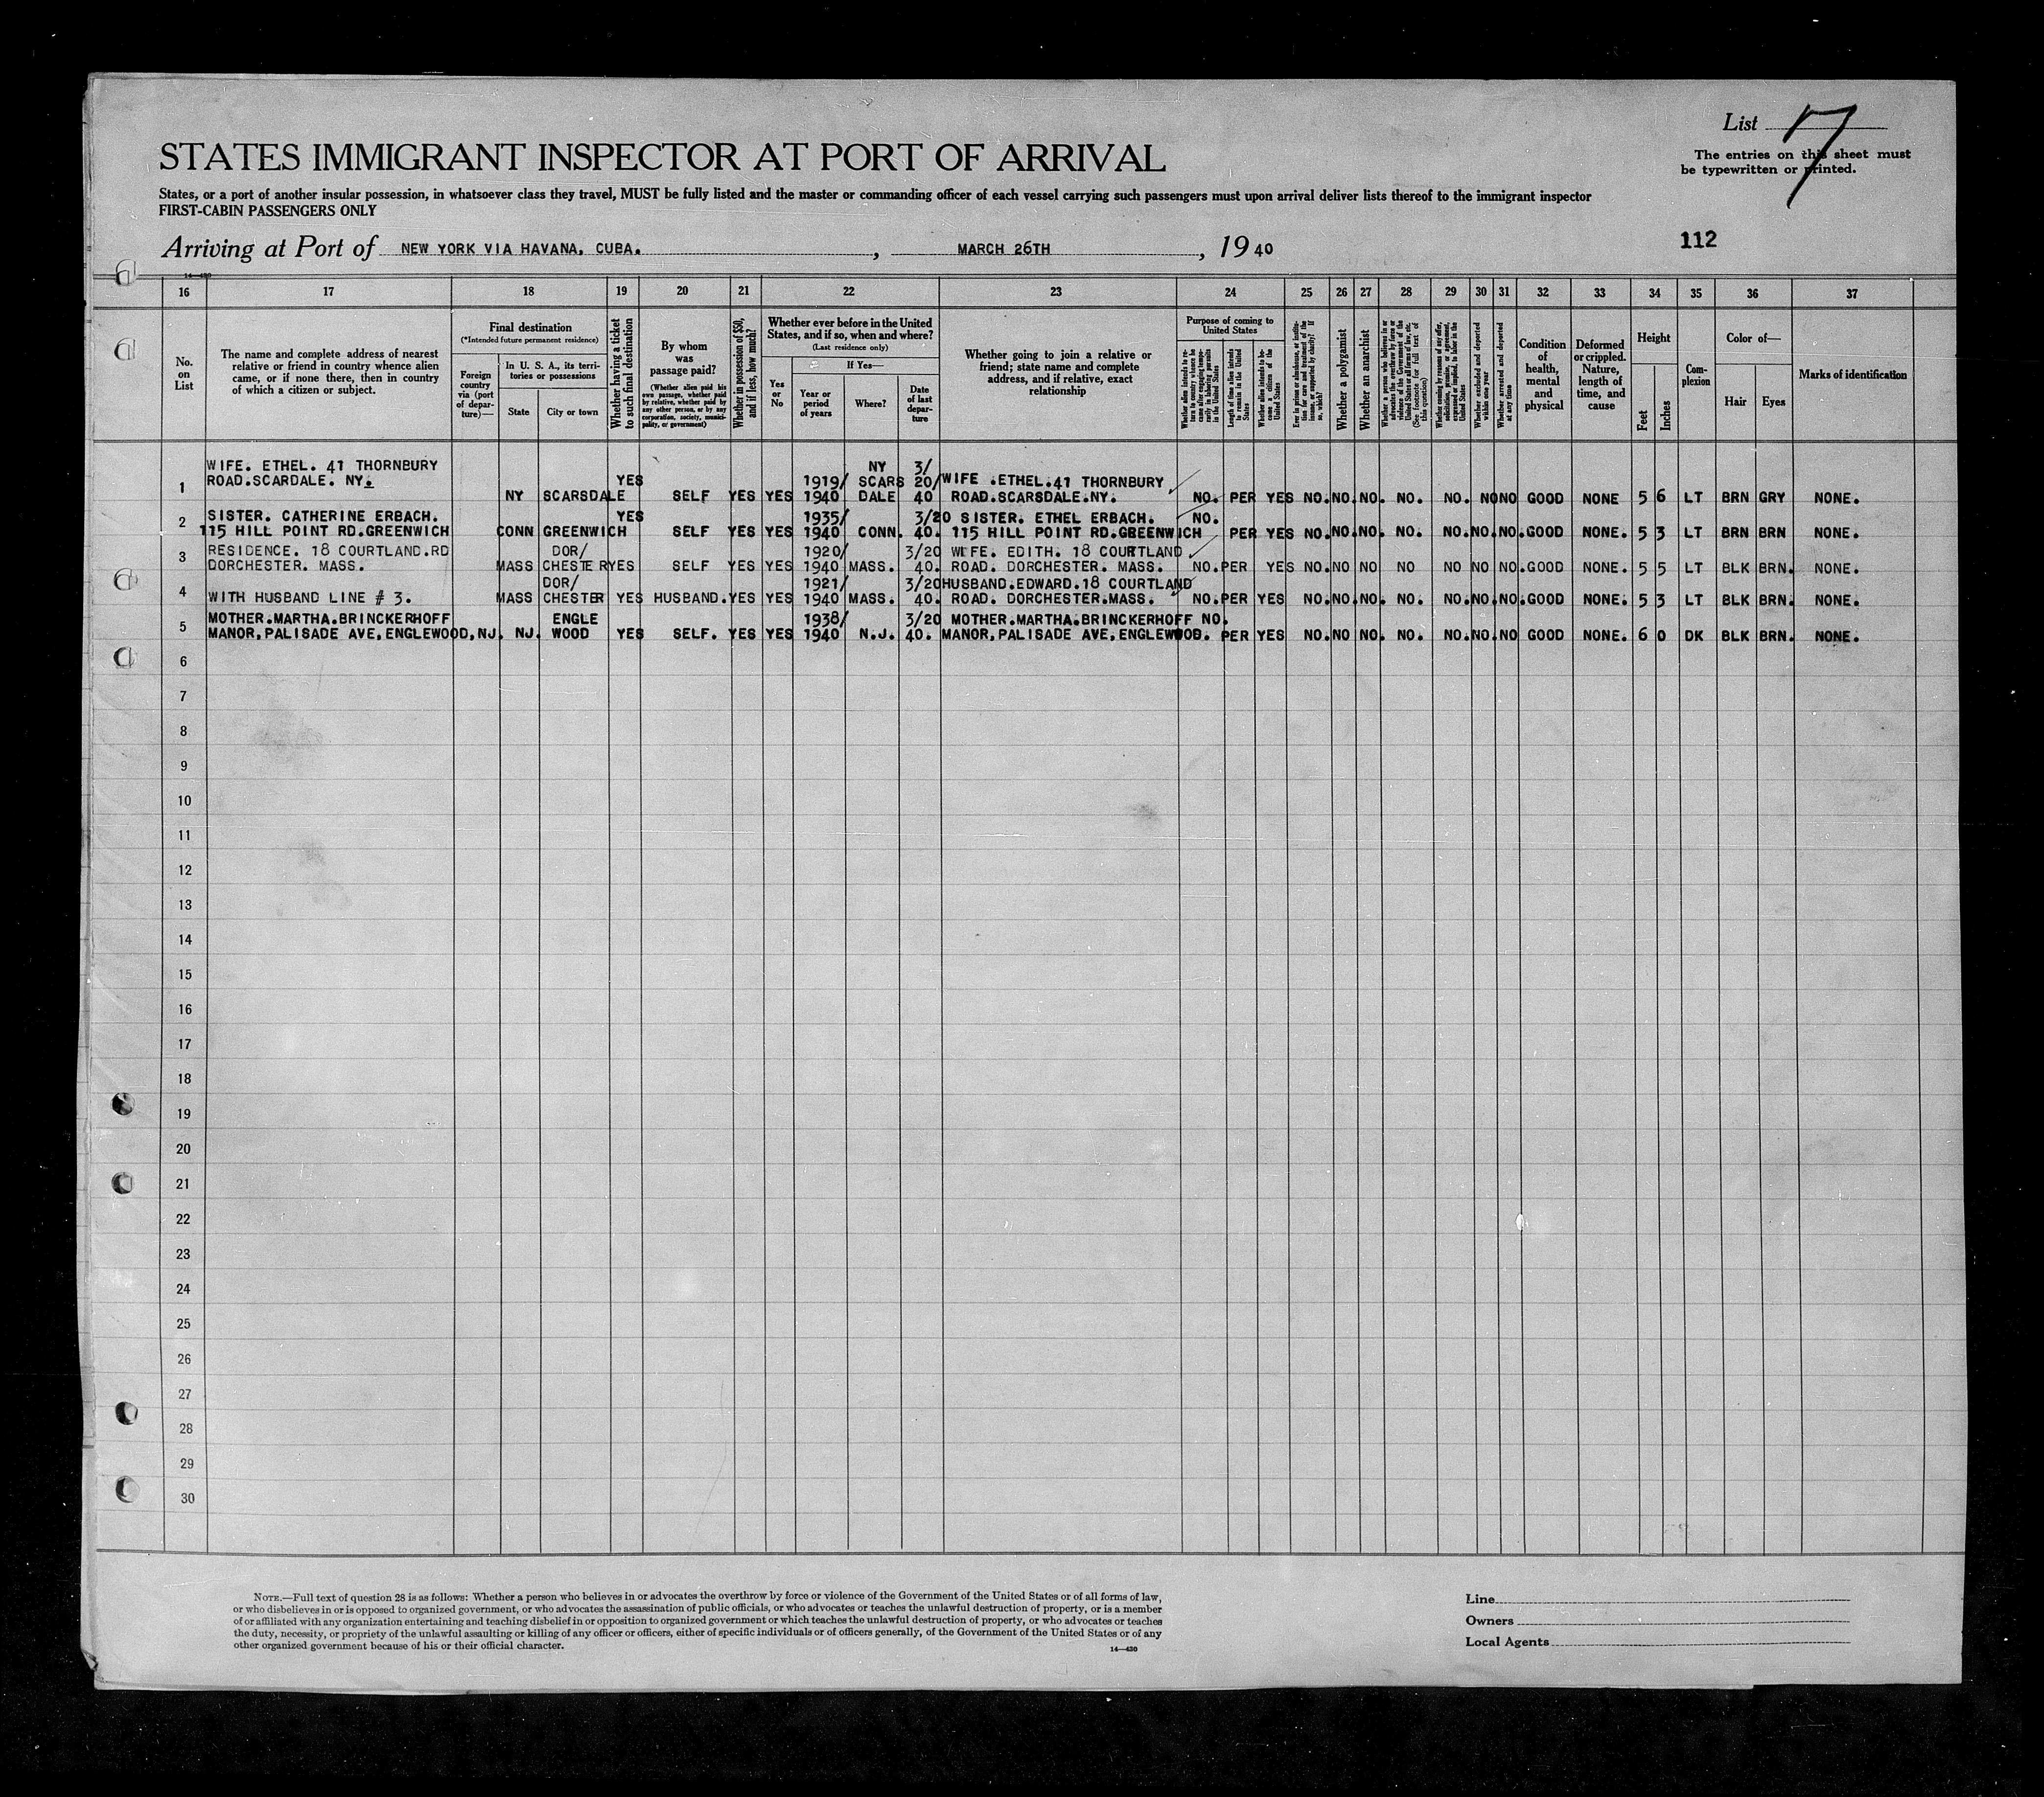 List 17
The entries on this sheet must
be typewritten or printed.
STATES IMMIGRANT INSPECTOR AT PORT OF ARRIVAL
States, or a port of another insular possession, in whatsoever class they travel, MUST be fully listed and the master or commanding officer of each vessel carrying such passengers must upon arrival deliver lists thereof to the immigrant inspector
FIRST-CABIN PASSENGERS ONLY
Arriving at Port of NEW YORK VIA HAVANA, CUBA. , MARCH 26TH , 19 40
112
14—430
16 17 18 19 20 21 22 23 24 25 26 27 28 29 30 31 32 33 34 35 36 37
No.
on
List
The name and complete address of nearest
relative or friend in country whence alien
came, or if none there, then in country
of which a citizen or subject.
Final destination
(*Intended future permanent residence)
Foreign
country
via (port
of depar-
ture)—
In U. S. A., its terri-
tories or possessions
State
City or town
Whether having a ticket
to such final destination
By whom
was
passage paid?
(Whether alien paid his
own passage, whether paid
by relative, whether paid by
any other person, or by any
corporation, society, munici-
pality, or government)
Whether in possession of $50,
and if less, how much?
Whether ever before in the United
States, and if so, when and where?
(Last residence only)
Yes
or
No
If Yes—
Year or
period
of years
Where?
Date
of last
depar-
ture
Whether going to join a relative or
friend; state name and complete
address, and if relative, exact
relationship
Purpose of coming to
United States
Whether alien intends to re-
turn to country whence he
came after engaging tempo-
rarily in laboring pursuits
in the United States
Length of time alien intends
to remain in the United
States
Whether alien intends to be-
come a citizen of the
United States
Ever in prison or almshouse, or institu-
tion for care and treatment of the
insane, or supported by charity? If
so, which?
Whether a polygamist
Whether an anarchist
Whether a person who believes in or
advocates the overthrow by force or
violence of the Government of the
United States or all forms of law, etc.
(See footnote for full text of
this question)
Whether coming by reason of any offer,
solicitation, promise, or agreement,
expressed or implied, to labor in the
United States
Whether excluded and deported
within one year
Whether arrested and deported
at any time
Condition
of
health,
mental
and
physical
Deformed
or crippled.
Nature,
length of
time, and
cause
Height
Feet
Inches
Com-
plexion
Color of—
Hair
Eyes
Marks of identification
WIFE. ETHEL. 41 THORNBURY NY 3/
ROAD.SCARDALE. NY. YES 1919/ SCARS 20/ WIFE .ETHEL.41 THORNBURY
1 NY SCARSDALE SELF YES YES 1940 DALE 40 ROAD.SCARSDALE.NY. NO. PER YES NO. NO. NO. NO. NO. NO NO GOOD NONE 5 6 LT BRN GRY NONE.
2 SISTER. CATHERINE ERBACH. YES 1935/ 3/20 SISTER. ETHEL ERBACH. NO.
115 HILL POINT RD.GREENWICH CONN GREENWICH SELF YES YES 1940 CONN. 40. 115 HILL POINT RD.GREENWICH PER YES NO. NO. NO. NO. NO. NO. NO. GOOD NONE. 5 3 LT BRN BRN NONE.
RESIDENCE. 18 COURTLAND.RD DOR/ 1920/ 3/20 WIFE. EDITH. 18 COURTLAND
3 DORCHESTER. MASS. MASS CHESTER YES SELF YES YES 1940 MASS. 40. ROAD. DORCHESTER. MASS. NO. PER YES NO. NO NO NO NO NO NO. GOOD NONE. 5 5 LT BLK BRN. NONE.
DOR/ 1921/ 3/20 HUSBAND.EDWARD.18 COURTLAND
4 WITH HUSBAND LINE # 3. MASS CHESTER YES HUSBAND. YES YES 1940 MASS. 40. ROAD. DORCHESTER.MASS. NO. PER YES NO. NO. NO. NO. NO. NO. NO. GOOD NONE. 5 3 LT BLK BRN. NONE.
MOTHER.MARTHA.BRINCKERHOFF ENGLE 1938/ 3/20 MOTHER.MARTHA.BRINCKERHOFF NO.
5 MANOR,PALISADE AVE,ENGLEWOOD,NJ. NJ. WOOD YES SELF. YES YES 1940 N.J. 40. MANOR,PALISADE AVE,ENGLEWOOD. PER YES NO. NO NO. NO. NO. NO. NO GOOD NONE. 6 0 DK BLK BRN. NONE.
6
7
8
9
10
11
12
13
14
15
16
17
18
19
20
21
22
23
24
25
26
27
28
29
30
NOTE.—Full text of question 28 is as follows: Whether a person who believes in or advocates the overthrow by force or violence of the Government of the United States or of all forms of law,
or who disbelieves in or is opposed to organized government, or who advocates the assassination of public officials, or who advocates or teaches the unlawful destruction of property, or is a member
of or affiliated with any organization entertaining and teaching disbelief in or opposition to organized government or which teaches the unlawful destruction of property, or who advocates or teaches
the duty, necessity, or propriety of the unlawful assaulting or killing of any officer or officers, either of specific individuals or of officers generally, of the Government of the United States or of any
other organized government because of his or their official character.
14—430
Line
Owners
Local Agents